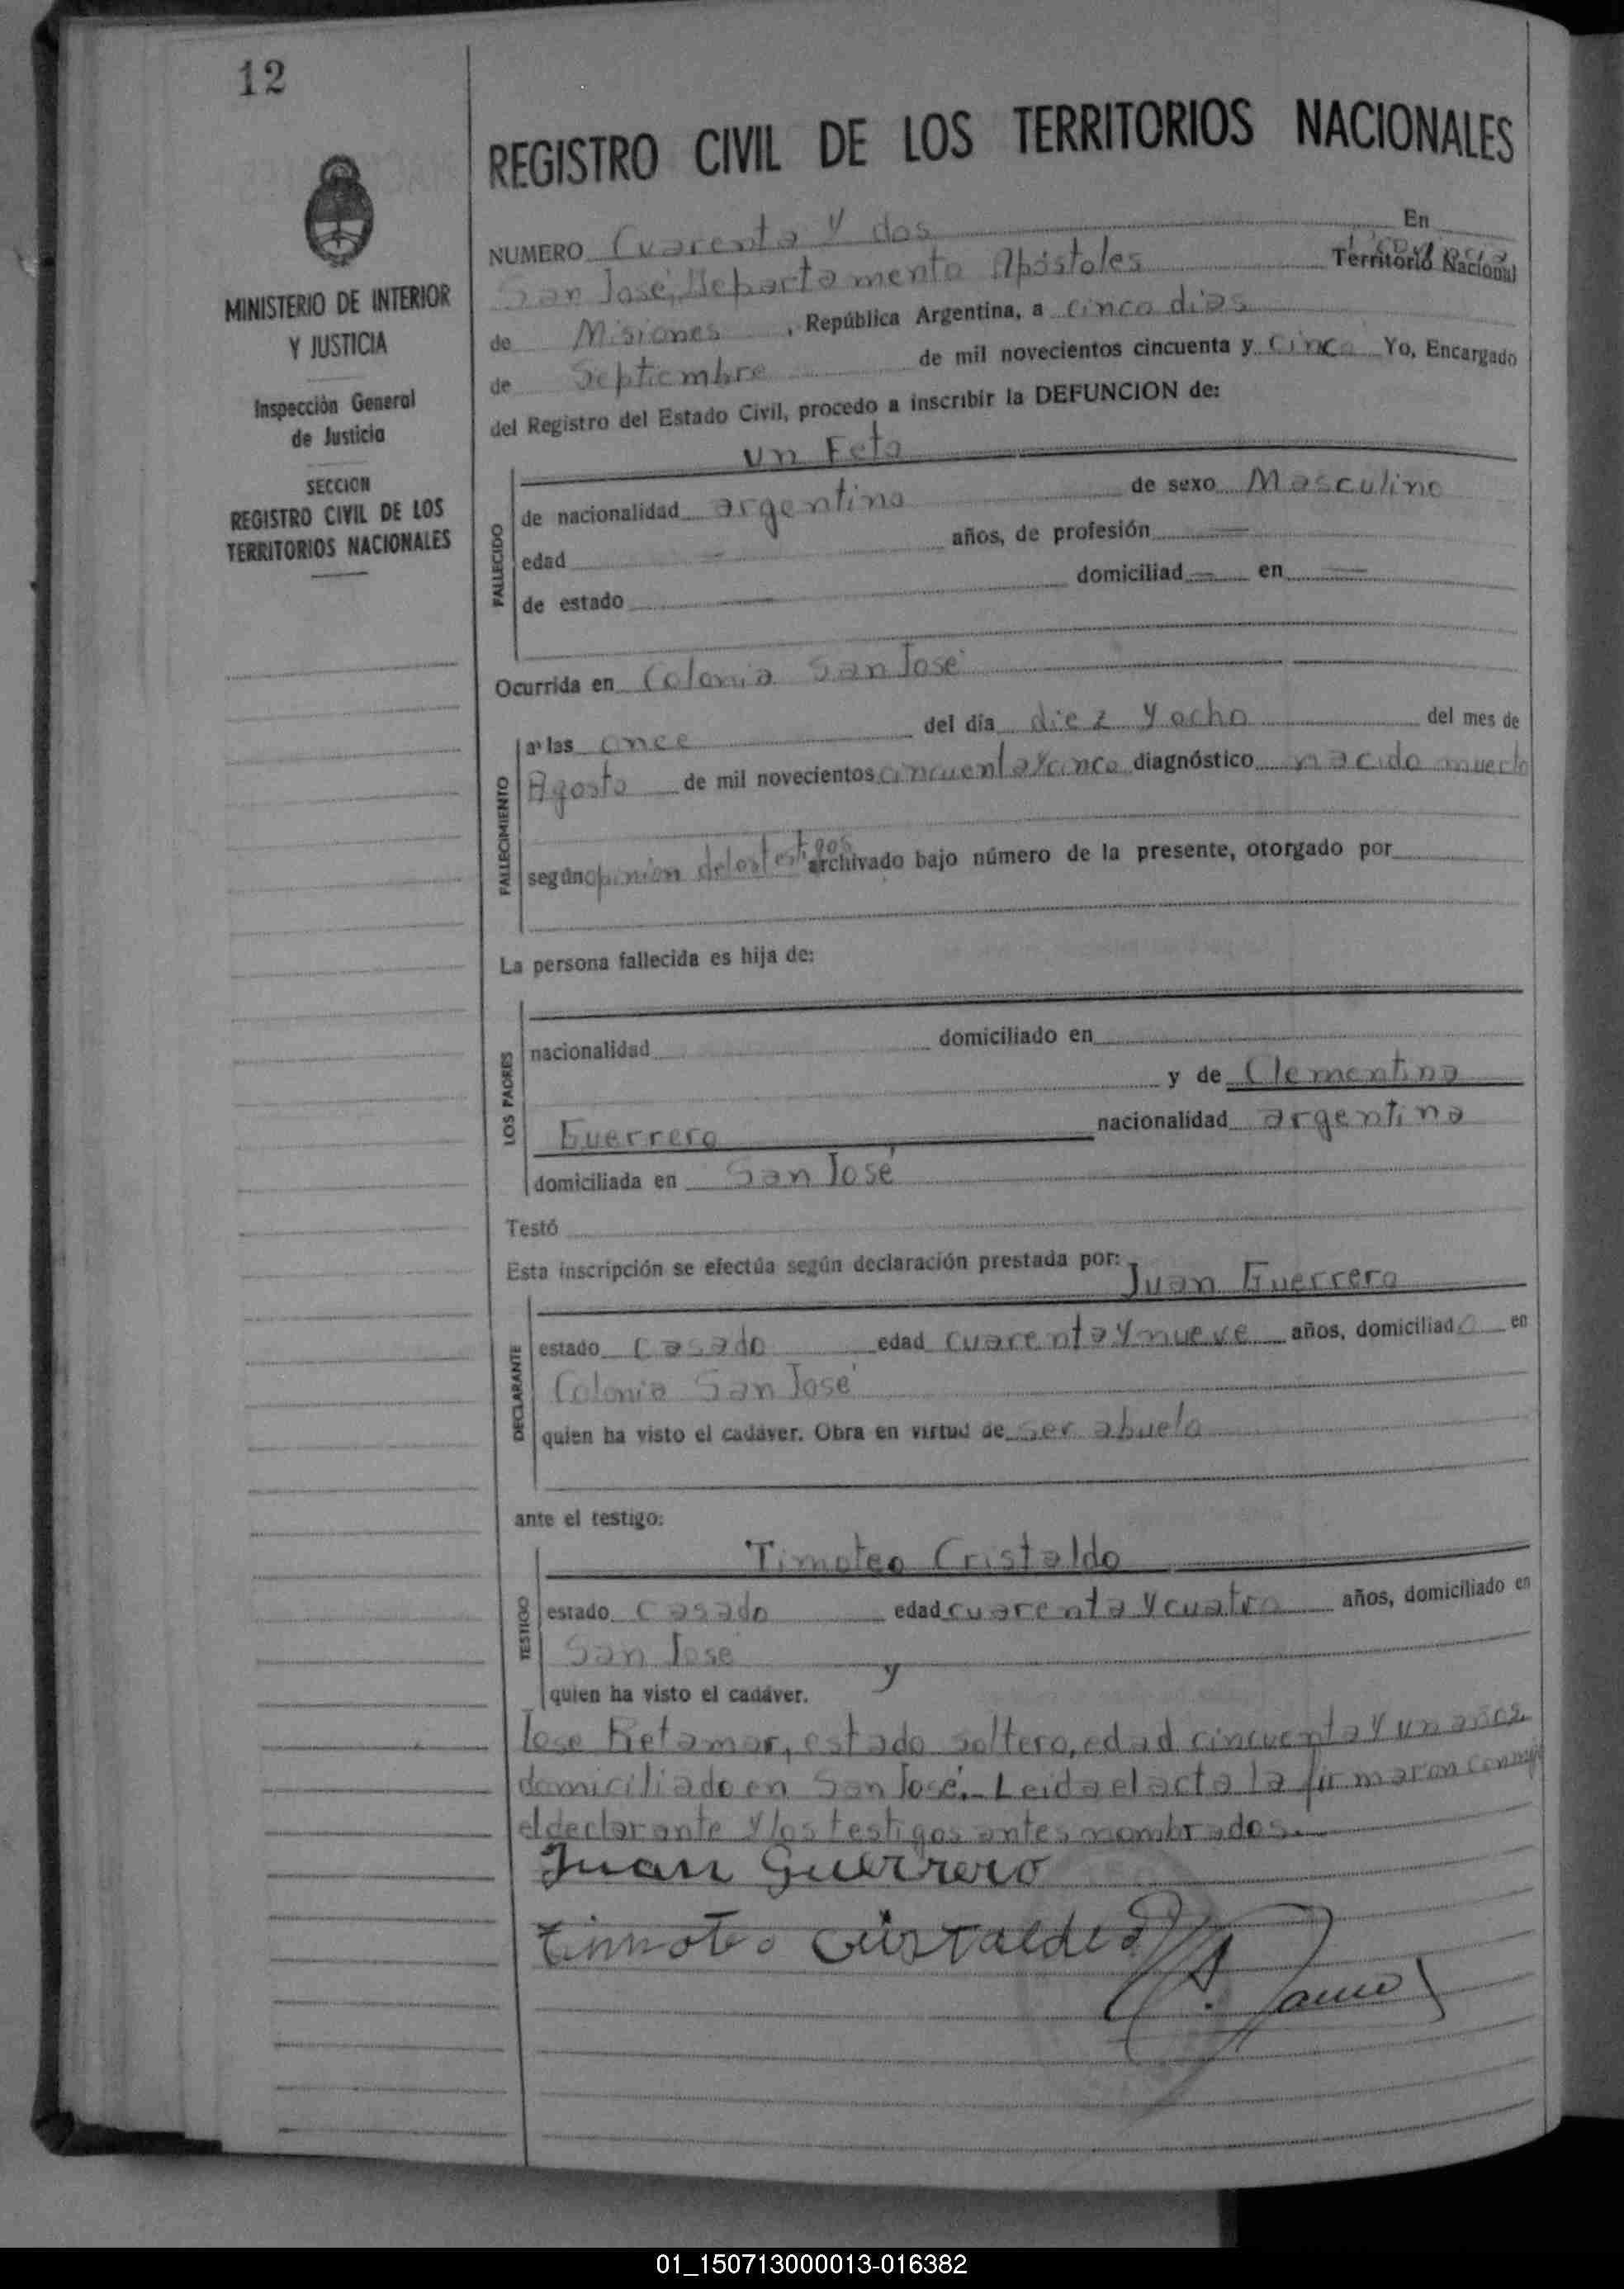 12
MINISTERIO DE INTERIOR
Y JUSTICIA
Inspección General
de Justicia
SECCION
REGISTRO CIVIL DE LOS
TERRITORIOS NACIONALES
REGISTRO CIVIL DE LOS TERRITORIOS NACIONALES
NUMERO Cuarenta y dos En
San José, Departamento Apóstoles Territorio Nacional
de Misiones, República Argentina, a cinco dias
de Septiembre de mil novecientos cincuenta y cinco Yo, Encargado
del Registro del Estado Civil, procedo a inscribir la DEFUNCION de:
un Feto
FALLECIDO
de nacionalidad argentina de sexo Masculino
edad — años, de profesión —
de estado — domiciliad — en —
Ocurrida en Colonia San José
FALLECIMIENTO
a las once del día diez y ocho del mes de
Agosto de mil novecientos cincuenta y cinco diagnóstico nacido muerto
según opinion de los testigos archivado bajo número de la presente, otorgado por
La persona fallecida es hija de:
LOS PADRES
nacionalidad domiciliado en
y de Clementina
Guerrero nacionalidad argentina
domiciliada en San José
Testó
Esta inscripción se efectúa según declaración prestada por:
Juan Guerrero
DECLARANTE
estado casado edad cuarenta y nueve años, domiciliado en
Colonia San José
quien ha visto el cadáver. Obra en virtud de ser abuelo
ante el testigo:
Timoteo Cristaldo
TESTIGO
estado casado edad cuarenta y cuatro años, domiciliado en
San José y
quien ha visto el cadáver.
Jose Retamar, estado soltero, edad cincuenta y un años
domiciliado en San José.- Leida el acta la firmaron conmigo
el declarante y los testigos antes nombrados.
Juan Guerrero
timoteo Cristaldo
01_150713000013-016382